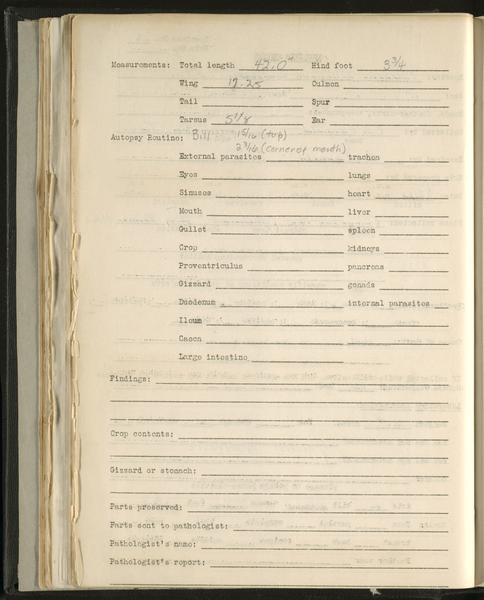 Measurements: Total length 42.0" Hind foot 3 3/4
Wing 17.25 Culmen
Tail Spur
Tarsus 5 1/8 Ear
Autopsy Routine: Bill 15/16 (top)
2 3/16 (corner of mouth)
External parasites trachea
Eyes lungs
Sinuses heart
Mouth liver
Gullet spleen
Crop kidneys
Proventriculus pancreas
Gizzard gonads
Duodenum internal parasites
Ileum
Caeca
Large intestine
Findings:
Crop contents:
Gizzard or stomach:
Parts preserved:
Parts sent to pathologist:
Pathologist's name:
Pathologist's report: